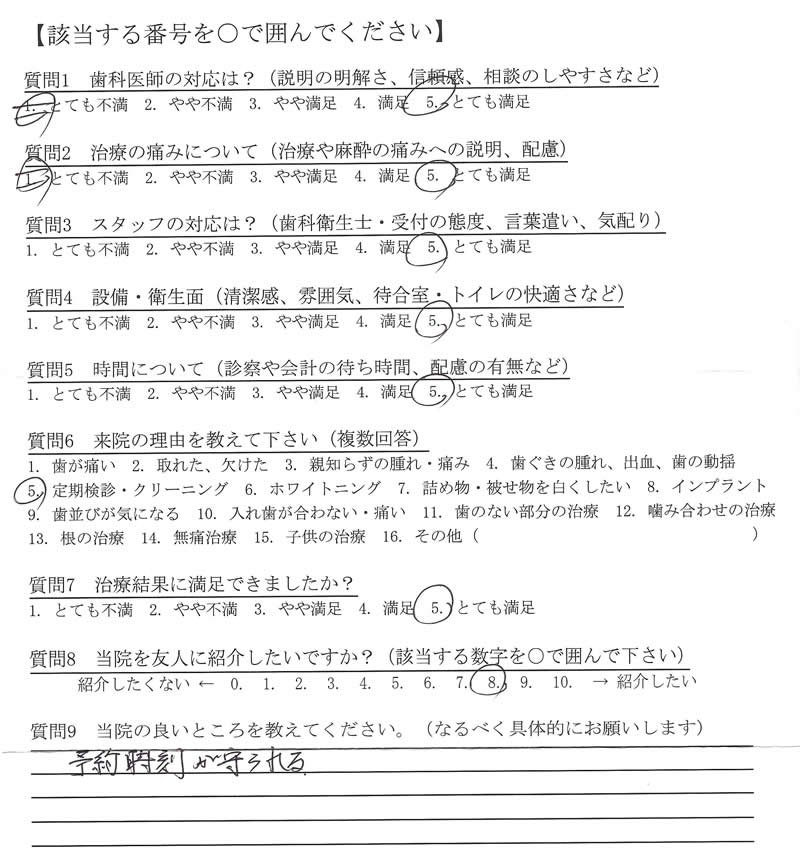 【該当する番号を〇で囲んでください】
質問1　歯科医師の対応は？（説明の明解さ、信頼感、相談のしやすさなど）
1. とても不満　2. やや不満　3. やや満足　4. 満足　5. とても満足
質問2　治療の痛みについて（治療や麻酔の痛みへの説明、配慮）
1. とても不満　2. やや不満　3. やや満足　4. 満足　5. とても満足
質問3　スタッフの対応は？（歯科衛生士・受付の態度、言葉遣い、気配り）
1. とても不満　2. やや不満　3. やや満足　4. 満足　5. とても満足
質問4　設備・衛生面（清潔感、雰囲気、待合室・トイレの快適さなど）
1. とても不満　2. やや不満　3. やや満足　4. 満足　5. とても満足
質問5　時間について（診察や会計の待ち時間、配慮の有無など）
1. とても不満　2. やや不満　3. やや満足　4. 満足　5. とても満足
質問6　来院の理由を教えて下さい（複数回答）
1. 歯が痛い　2. 取れた、欠けた　3. 親知らずの腫れ・痛み　4. 歯ぐきの腫れ、出血、歯の動揺
5. 定期検診・クリーニング　6. ホワイトニング　7. 詰め物・被せ物を白くしたい　8. インプラント
9. 歯並びが気になる　10. 入れ歯が合わない・痛い　11. 歯のない部分の治療　12. 噛み合わせの治療
13. 根の治療　14. 無痛治療　15. 子供の治療　16. その他（　　　　　　　　　　　　　　　　　　）
質問7　治療結果に満足できましたか？
1. とても不満　2. やや不満　3. やや満足　4. 満足　5. とても満足
質問8　当院を友人に紹介したいですか？（該当する数字を〇で囲んで下さい）
紹介したくない ← 0. 1. 2. 3. 4. 5. 6. 7. 8. 9. 10. → 紹介したい
質問9　当院の良いところを教えてください。（なるべく具体的にお願いします）
予約時刻が守られる